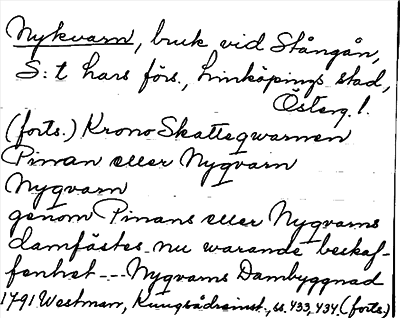 Nykvarn, bruk vid Stångån,
S:t Lars förs., Linköpings stad,
Österg. l.
(forts.) Krono Skatteqwarnen
Pinan eller Nyqvarn
Nyqvarn
genom Pinans eller Nyqvarns
damfästes nu warande beskaf-
fenhet --- Nyqvarns Dambyggnad
1791 Westman, 433, 434. (forts.)